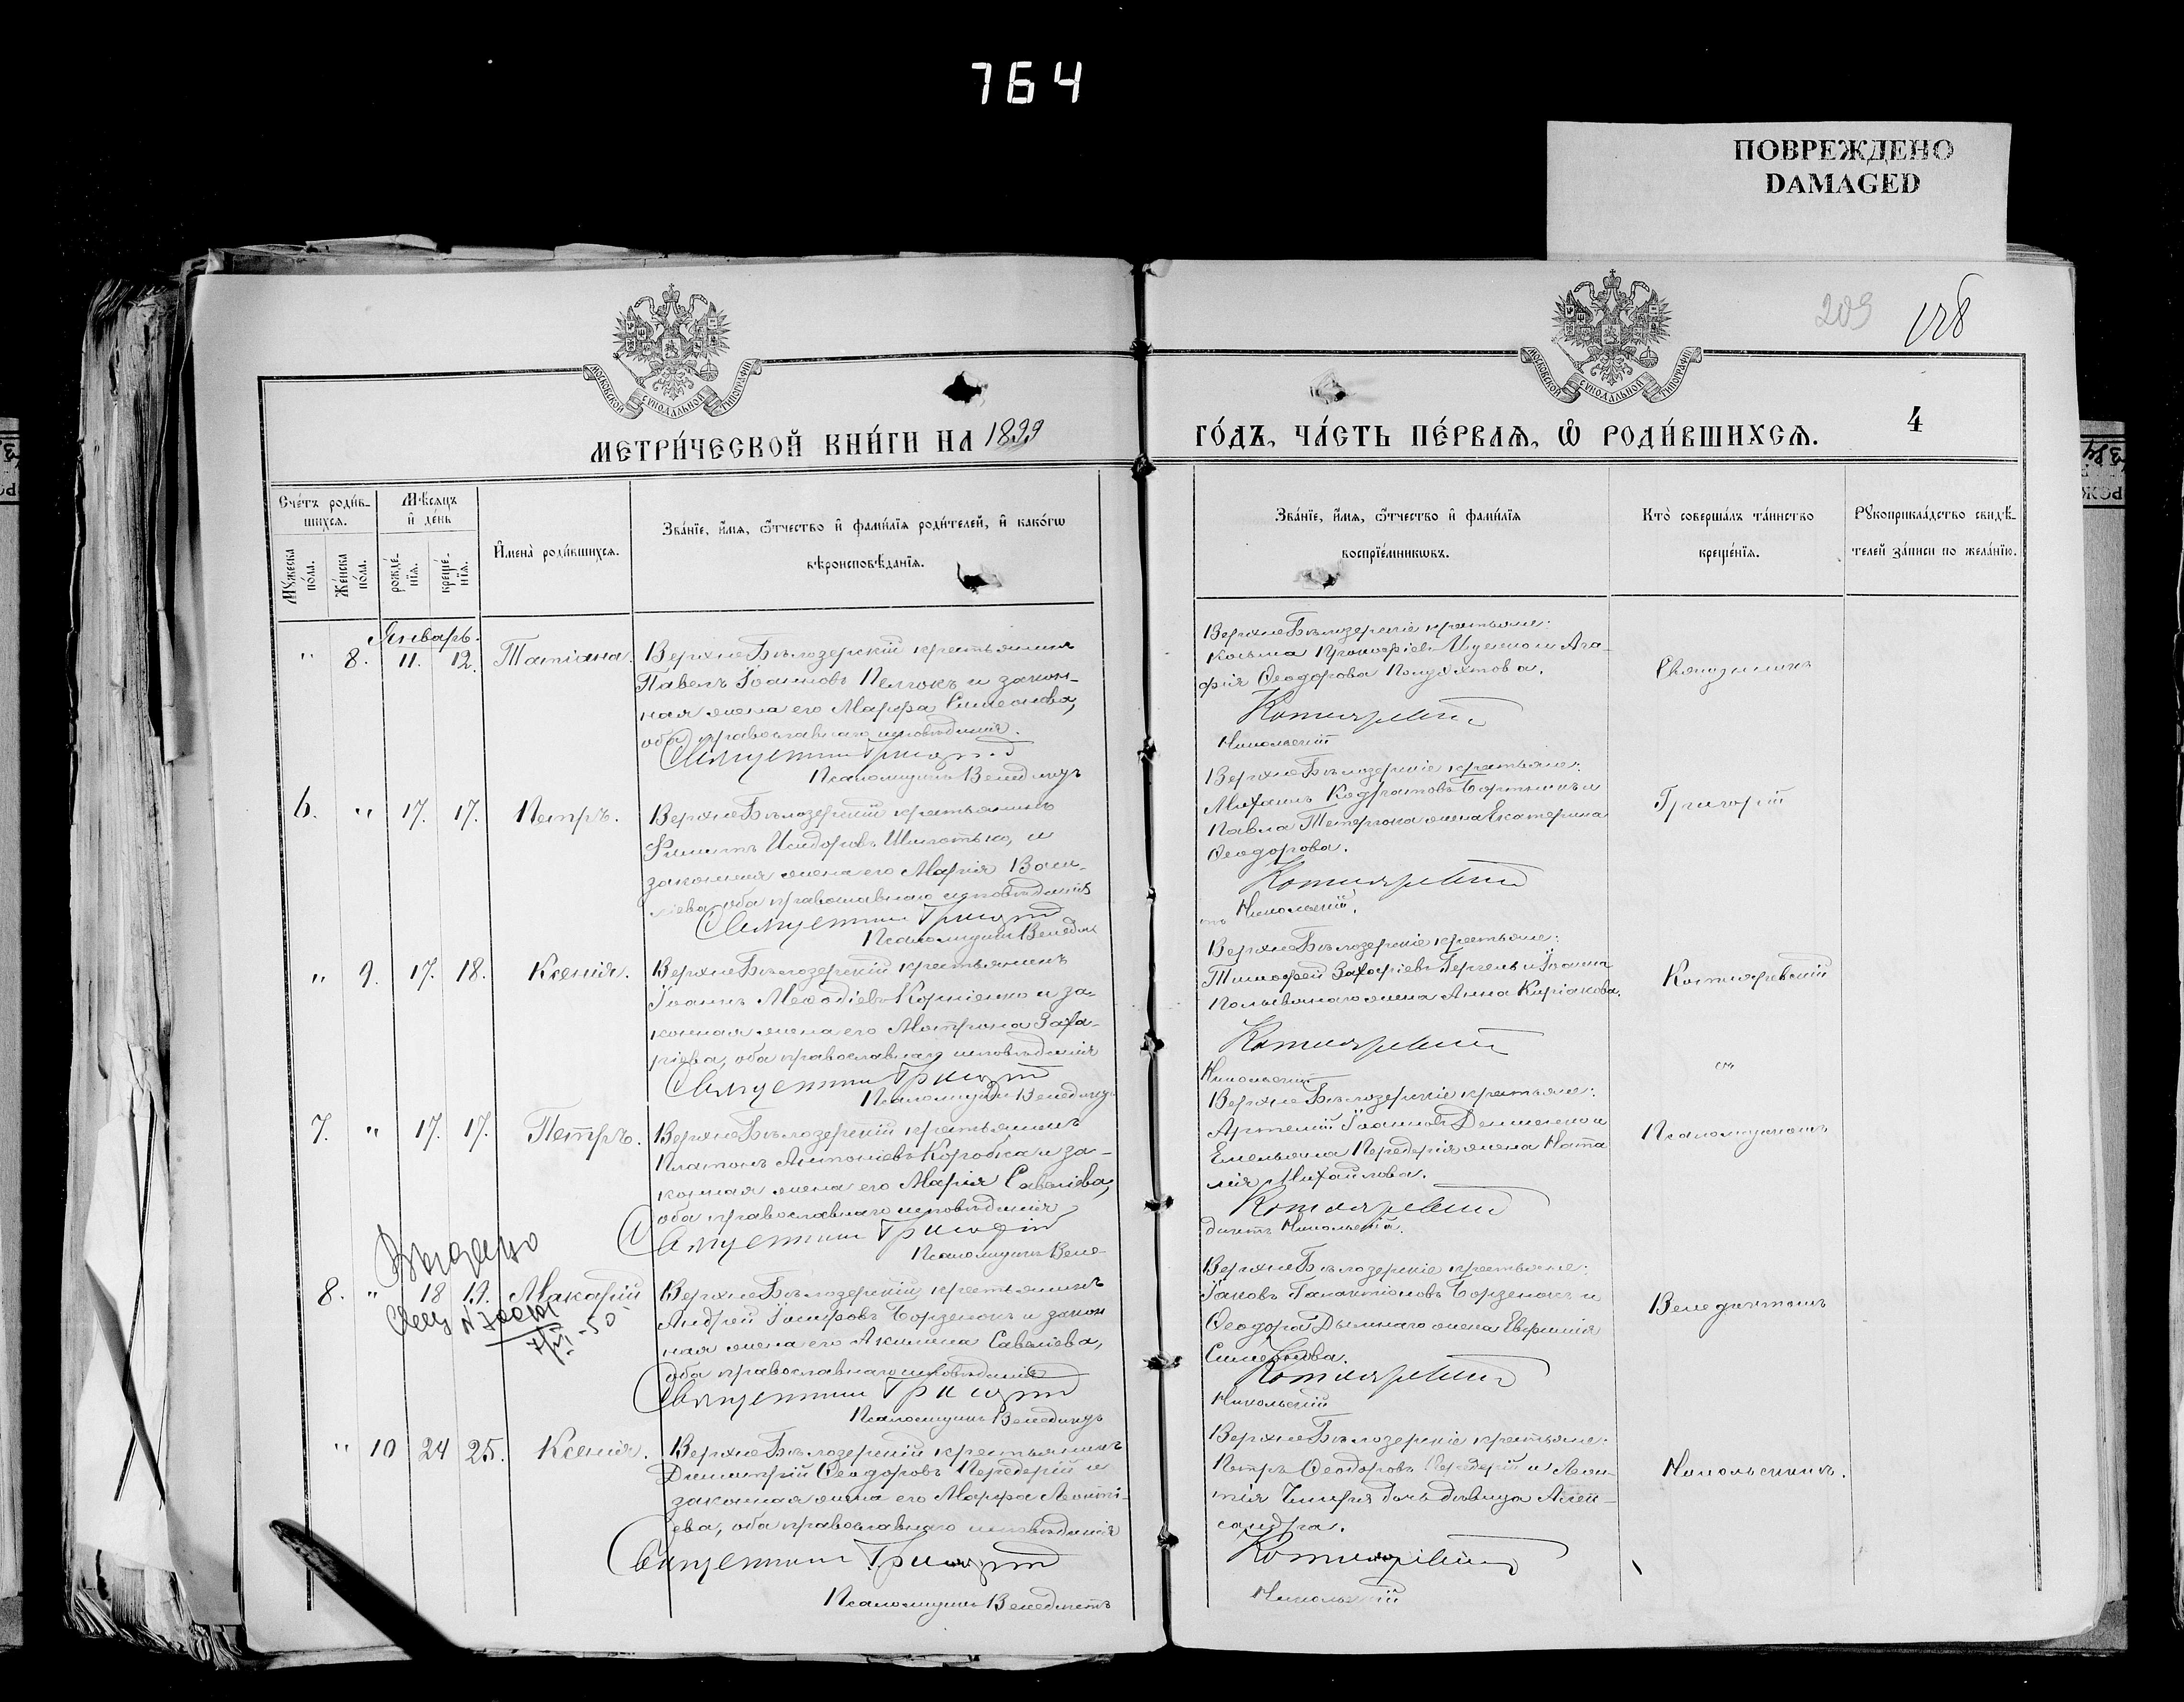 764
ПОВРЕЖДЕНО
DAMAGED
209
128
МОСКОВСКОЙ СУНОДАЛЬНОЙ ТИПОГРАФІИ
МОСКОВСКОЙ СУНОДАЛЬНОЙ ТИПОГРАФІИ
МЕТРИ́ЧЕСКОЙ КНИ́ГИ НА 1899
ГО́ДЪ, ЧА́СТЬ ПЕ́РВАѦ, Ѽ РОДИ́ВШИХСѦ.
4
Сче́тъ роди́в-
шихсѧ.
Мꙋжеска по́ла.
Же́нска по́ла.
Мѣ́сѧцъ
и҆ де́нь
рожде́-
нїѧ.
креще́-
нїѧ.
И҆мена̀ роди́вшихсѧ.
Зва́нїе, и҆́мѧ, ѻ҆́тчество и҆ фами́лїѧ роди́телей, и҆ како́гѡ
вѣроисповѣ́данїѧ.
Зва́нїе, и҆́мѧ, ѻ҆́тчество и҆ фами́лїѧ
воспрїе́мникѡвъ.
Кто̀ соверша́лъ та́инство
креще́нїѧ.
Рꙋкоприкла́дство свидѣ́-
телей за́писи по жела́нїю.
Январь.
" 8. 11. 12. Татіана.
Верхне Бѣлозерскій крестьянинъ
Павелъ Іоанновъ и закон-
ная жена его Марфа Симеонова,
оба православнаго исповѣданія.
Священникъ Григорій
Псаломщикъ Венедиктъ
Верхне Бѣлозерскіе крестьяне:
Козьма Прокофіевъ и Ага-
фія Ѳеодорова
Котляревскій
Никольскій
Священникъ
6. " 17. 17. Петръ.
Верхне Бѣлозерскій крестьянинъ
Филиппъ Исидоровъ и
законная жена его Марія Васи-
ліева, оба православнаго исповѣданія
Священникъ Григорій
Псаломщикъ Венедик
Верхне Бѣлозерскіе крестьяне:
Михаилъ Кодратовъ и
Павла жена Екатерина
Ѳеодорова.
Котляревскій
тъ Никольскій.
Григорій
" 9. 17. 18. Ксенія.
Верхне Бѣлозерскій крестьянинъ
Іоаннъ Меѳодіевъ Корніенко и за-
конная жена его Матрона Заха-
ріева, оба православнаго исповѣданія
Священникъ Григорій
Псаломщикъ Венедиктъ
Верхне Бѣлозерскіе крестьяне:
Тимофей Захаріевъ и Іоанна
жена Анна Киріакова.
Котляревскій
Никольскій
Котляревскій
съ
7. " 17. 17. Петръ.
Верхне Бѣлозерскій крестьянинъ
Платонъ Антоніевъ Коробка и за-
конная жена его Марія Савеліева,
оба православнаго исповѣданія
Священникъ Григорій
Псаломщикъ Вене-
Верхне Бѣлозерскіе крестьяне:
Артемій Іоанновъ и
Емельяна Передерія жена Ната
лія Михайлова.
Котляревскій
диктъ Никольскій.
Псаломщикомъ
8. " 18 19. Макарій
Выдано
Верхне Бѣлозерскій крестьянинъ
Андрей Борзенокъ и закон
ная жена его Акилина Савеліева,
оба православнаго исповѣданія
Священникъ Григорій
Псаломщикъ Венедиктъ
Верхне Бѣлозерскіе крестьяне:
Іаковъ Галактіоновъ Борзенокъ и
Ѳеодора жена Евфимія
Симеонова.
Котляревскій
Никольскій
Венедиктомъ
" 10 24 25. Ксенія.
Верхне Бѣлозерскій крестьянинъ
Димитрій Ѳеодоровъ Передерій и
законная жена его Марфа Леонті-
ева, оба православнаго исповѣданія
Священникъ Григорій
Псаломщикъ Венедиктъ
Верхне Бѣлозерскіе крестьяне:
Петръ Ѳеодоровъ Передерій и Леон-
тія дочь дѣвица Алек-
сандра.
Котляревскій
Никольскій
Никольскимъ.